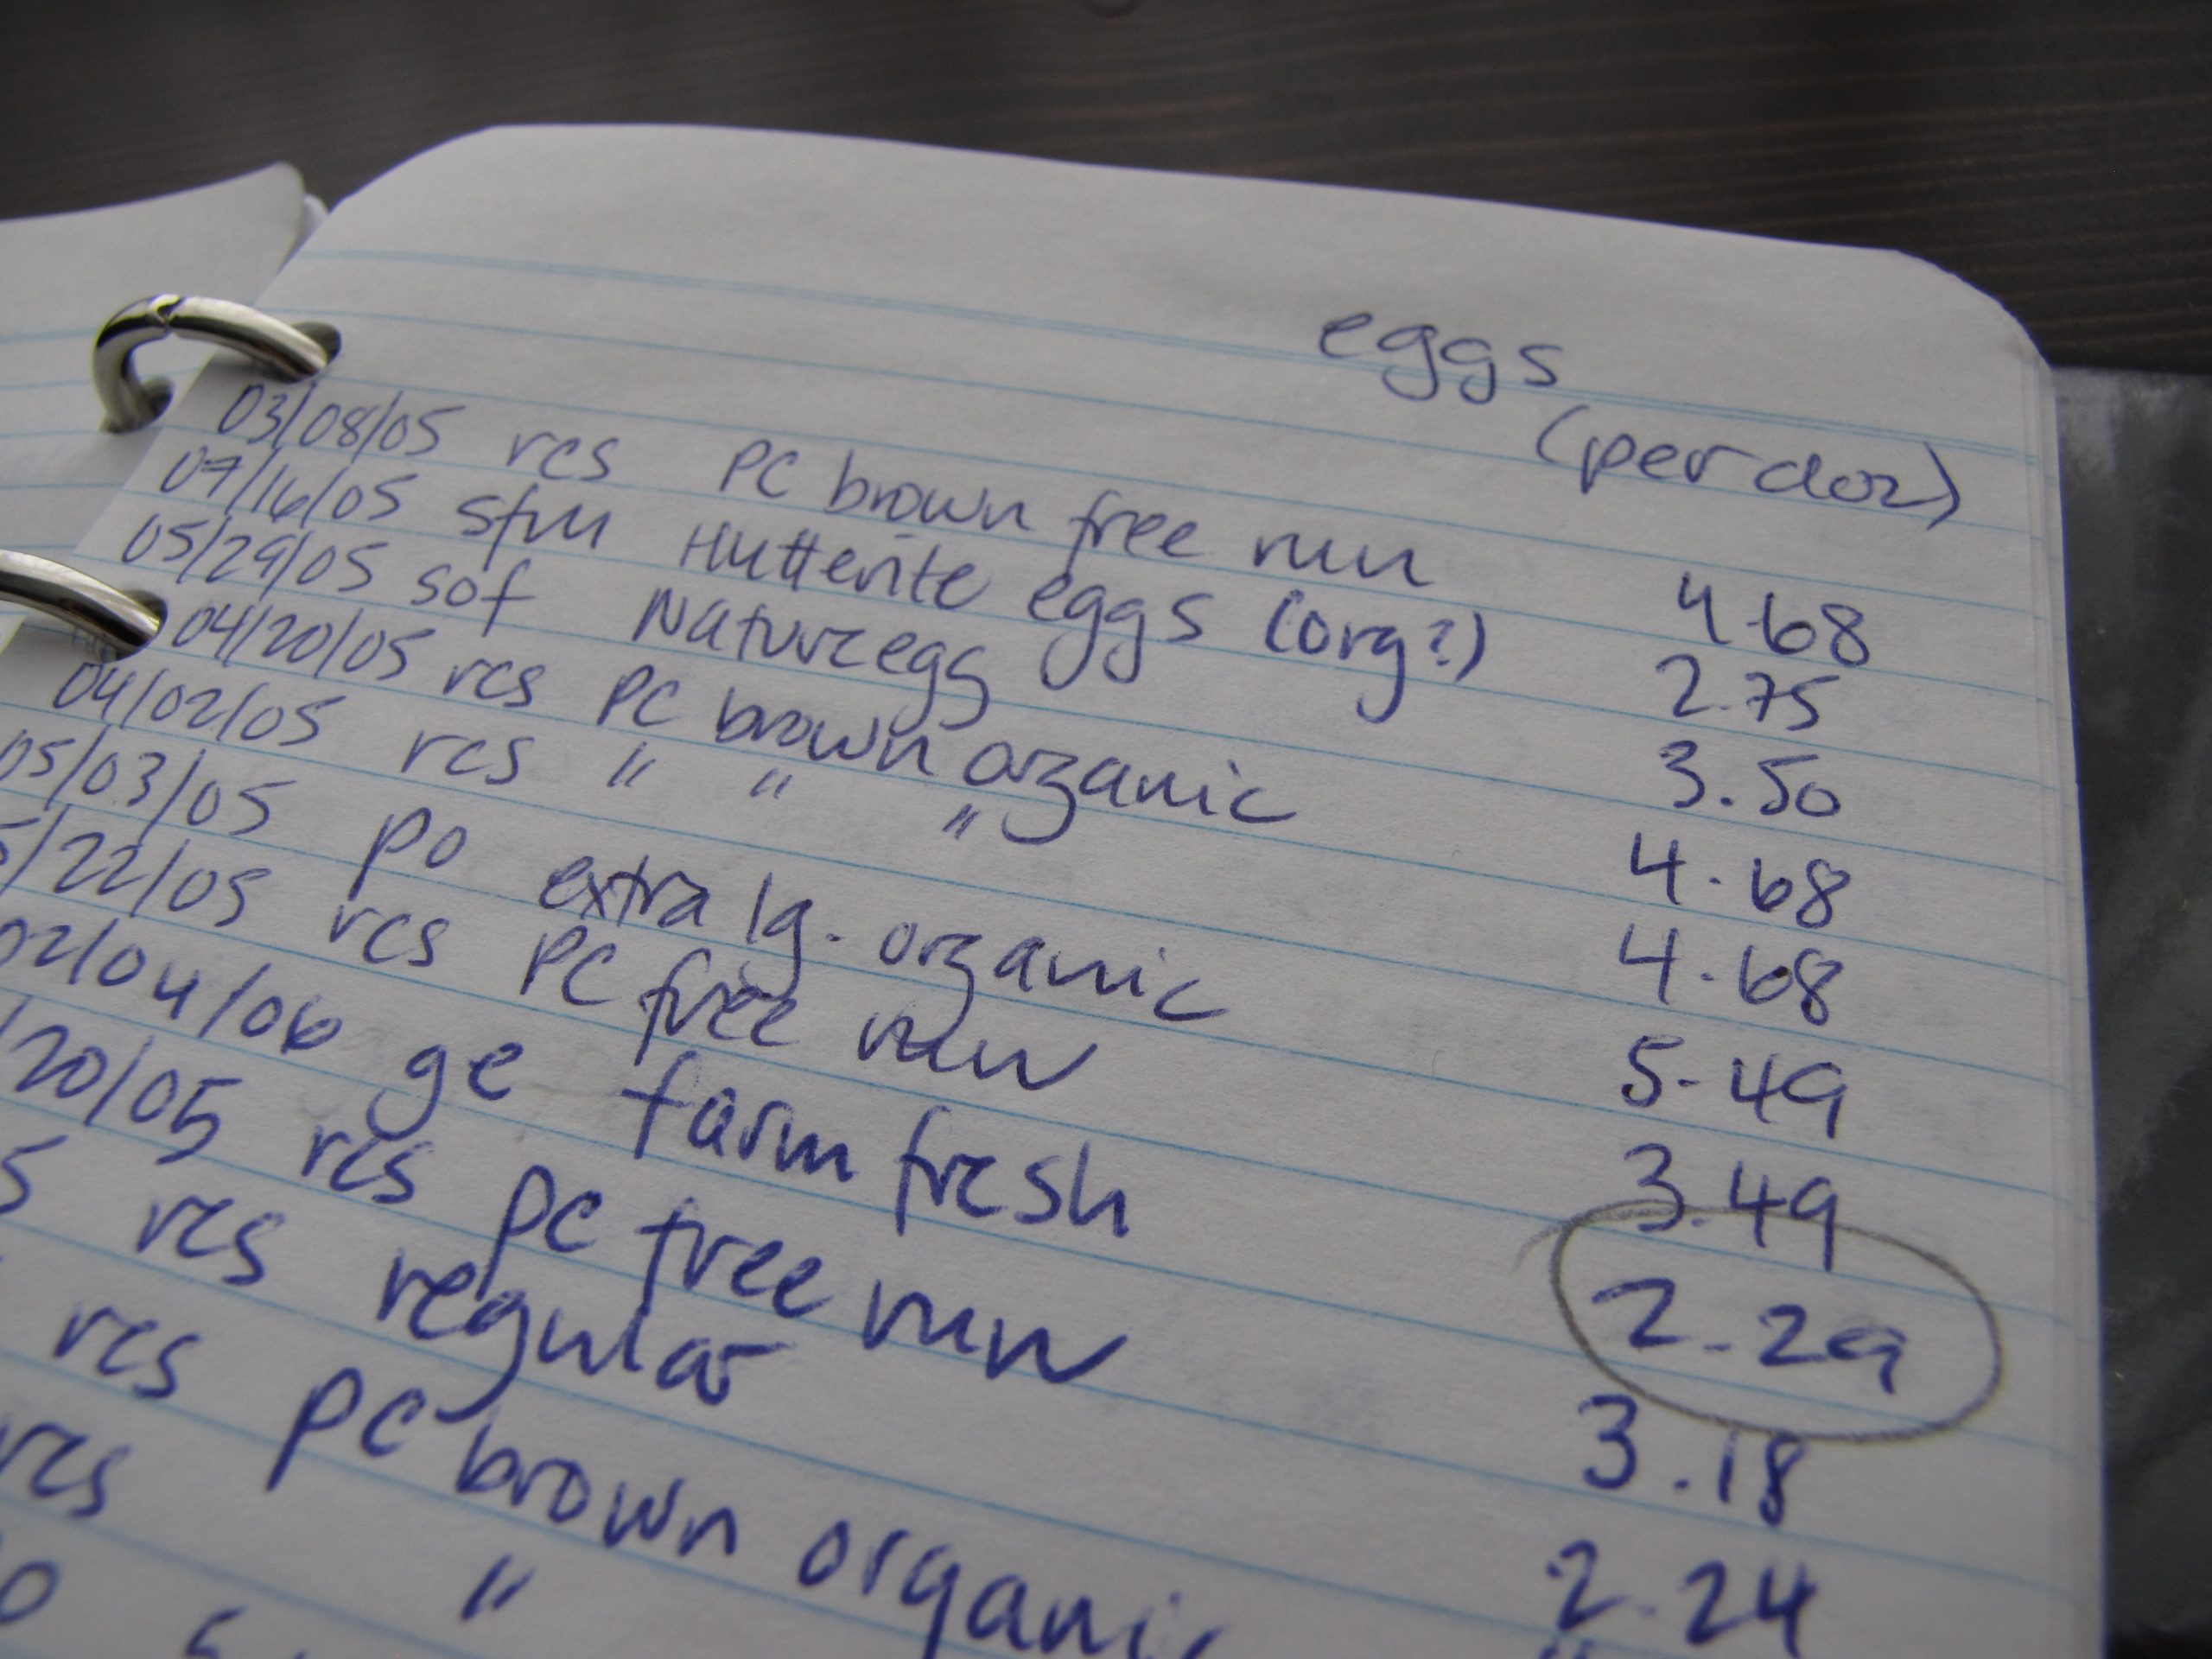 eggs
(per doz)
03/08/05 rcs PC brown free run 4.68
07/16/05 sfm Hutterite eggs (org?) 2.75
05/29/05 sof Naturegg 3.50
04/20/05 rcs PC brown organic 4.68
04/02/05 rcs " " " 4.68
05/03/05 po extra lg. organic 5.49
5/22/05 rcs PC free run 3.49
02/04/06 ge farm fresh 2.29
/20/05 rcs PC free run 3.18
5 rcs regular 2.24
rcs PC brown organic
rcs "